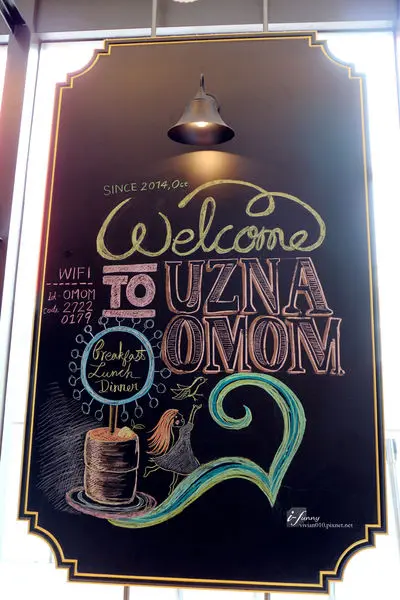 SINCE 2014, Oct.
Welcome
TO UZNA
OMOM
WIFI
Id - OMOM
code 2722
0179
Breakfast
Lunch
Dinner
i-funny
vivian010.pixnet.net